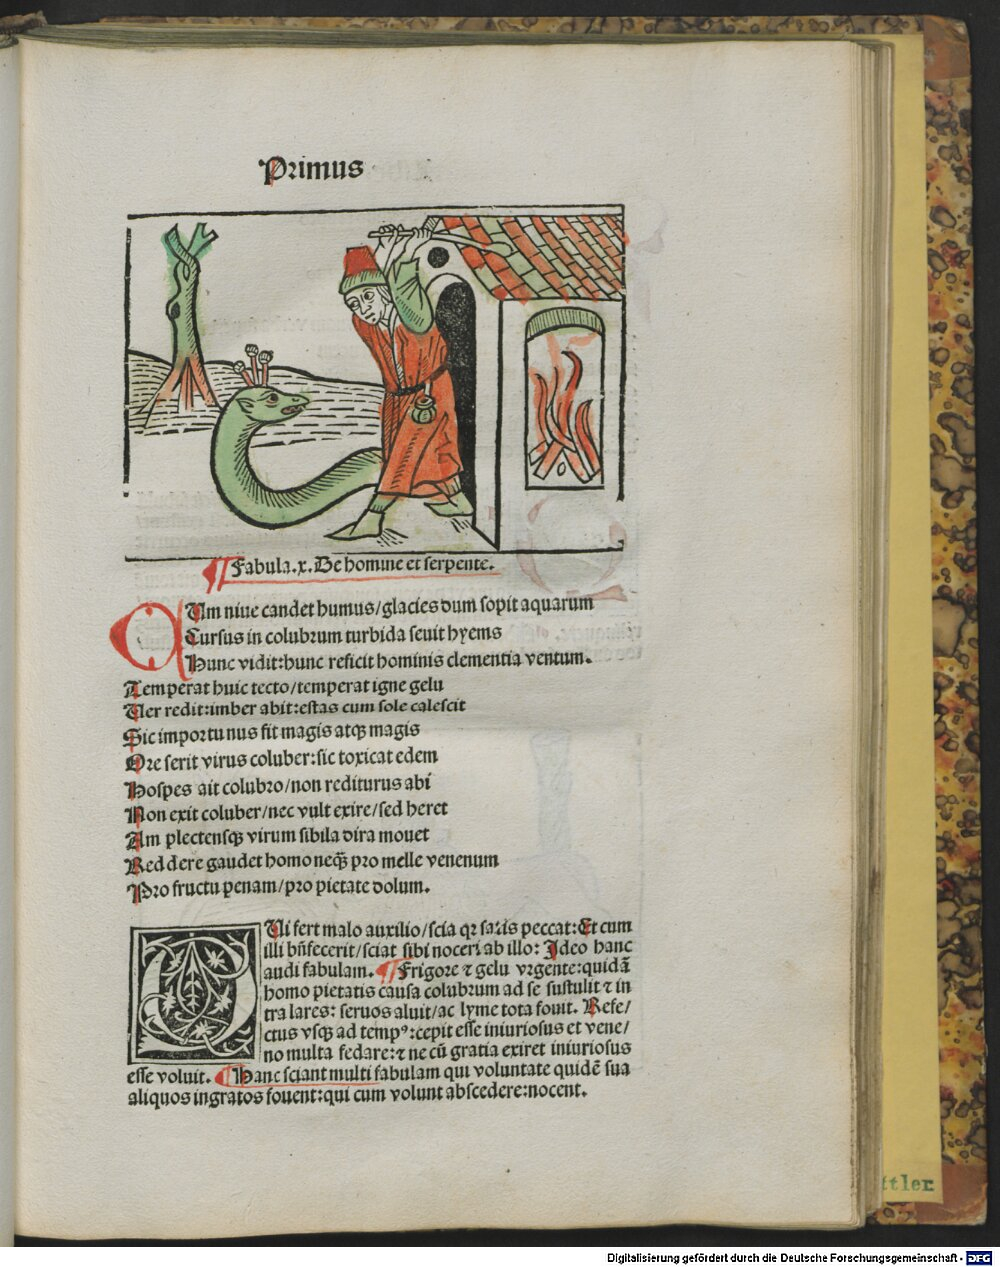 Primus
¶Fabula.x. De homine et serpente.
CUm niue candet humus/glacies dum sopit aquarum
Cursus in colubrum turbida seuit hyems
Hunc vidit:hunc reficit hominis clementia ventum.
Temperat huic tecto/temperat igne gelu
Uer redit:imber abit:estas cum sole calescit
Sic importunus fit magis atqꝫ magis
Ore serit virus coluber:sic toxicat edem
Hospes ait colubro/non rediturus abi
Non exit coluber/nec vult exire/sed heret
Am plectensqꝫ virum sibila dira mouet
Red dere gaudet homo neqꝫ̃ pro melle venenum
Pro fructu penam/pro pietate dolum.
QUi fert malo auxilio/scia qꝛ satis peccat:Et cum
illi bñfecerit/sciat sibi noceri ab illo: Ideo hanc
audi fabulam. ¶Frigore ⁊ gelu vrgente:quidã
homo pietatis causa colubrum ad se sustulit ⁊ in
tra lares: seruos aluit/ac hyme tota fouit. Refe/
ctus vsqꝫ ad tempꝰ:cepit esse iniuriosus et vene/
no multa fedare:⁊ ne cũ gratia exiret iniuriosus
esse voluit. ¶Hanc sciant multi fabulam qui voluntate quidẽ sua
aliquos ingratos fouent:qui cum volunt abscedere:nocent.
ttler
Digitalisierung gefördert durch die Deutsche Forschungsgemeinschaft - DFG